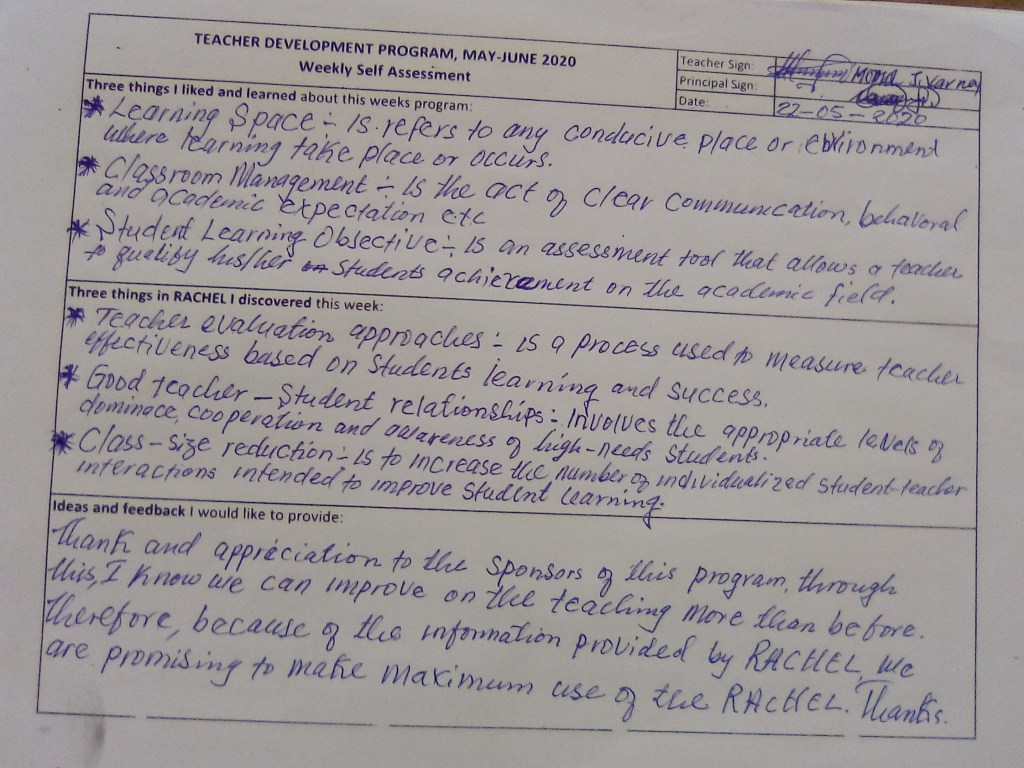 TEACHER DEVELOPMENT PROGRAM, MAY-JUNE 2020
Weekly Self Assessment
Teacher Sign: Momo J. Varney
Principal Sign:
Date: 22-05-2020
Three things I liked and learned about this weeks program:
* Learning Space:- Is refers to any conducive place or environment
where learning take place or occurs.
* Classroom Management:- Is the act of clear communication, behavioral
and academic expectation etc
* Student Learning Objective:- Is an assessment tool that allows a teacher
to qualify his/her students achievement on the academic field.
Three things in RACHEL I discovered this week:
* Teacher evaluation approaches:- is a process used to measure teacher
effectiveness based on students learning and success.
* Good teacher - Student relationships:- Involves the appropriate levels of
dominace, cooperation and awareness of high-needs students.
* Class-size reduction:- is to increase the number of individualized student-teacher
interactions intended to improve student learning.
Ideas and feedback I would like to provide:
Thank and appreciation to the sponsors of this program, through
this, I know we can improve on the teaching more than before.
Therefore, because of the information provided by RACHEL, we
are promising to make maximum use of the RACHEL. Thanks.